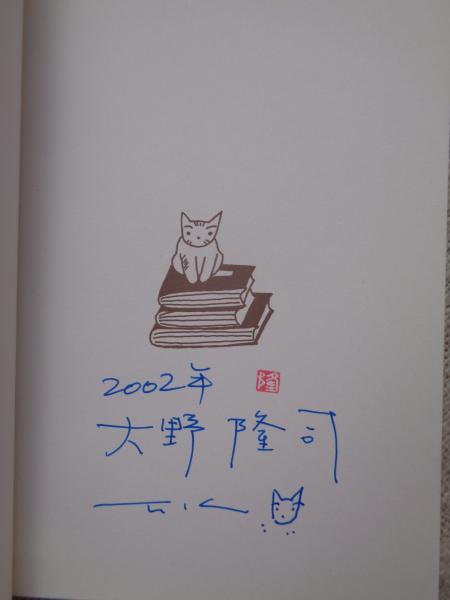 2002年 隆
大野 隆司